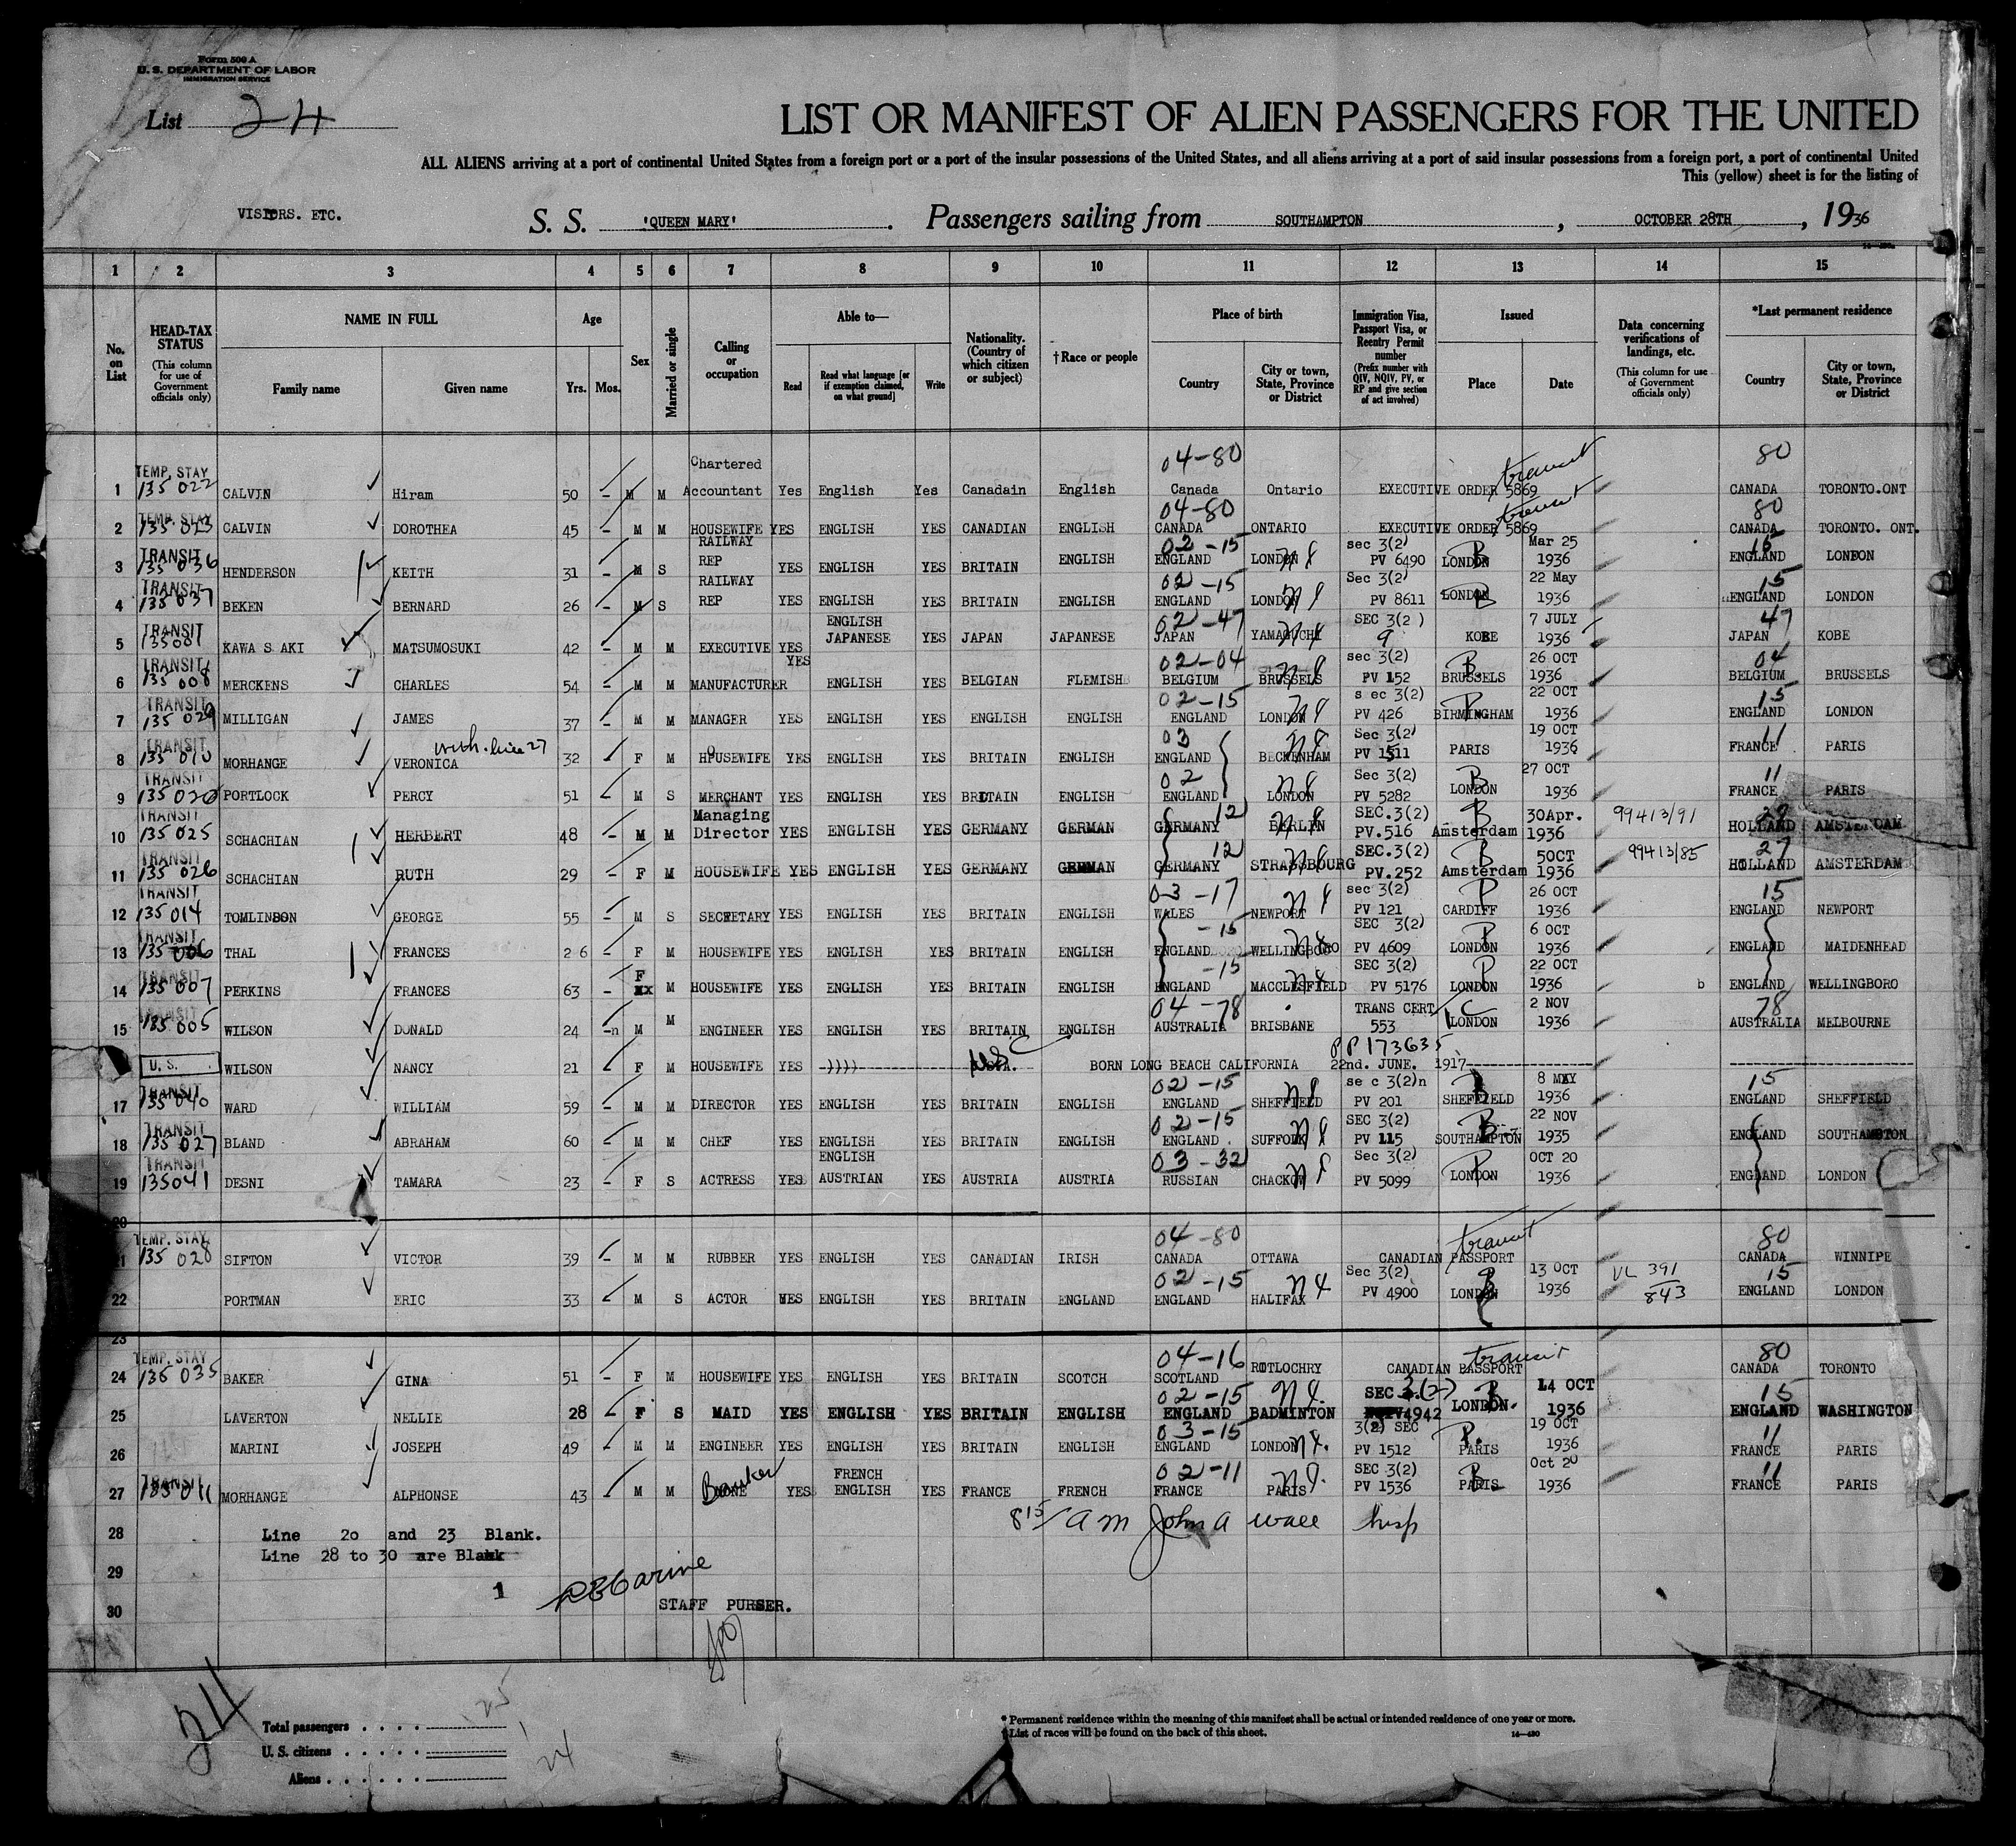 Form 500 A
U. S. DEPARTMENT OF LABOR
IMMIGRATION SERVICE
List 24
LIST OR MANIFEST OF ALIEN PASSENGERS FOR THE UNITED
ALL ALIENS arriving at a port of continental United States from a foreign port or a port of the insular possessions of the United States, and all aliens arriving at a port of said insular possessions from a foreign port, a port of continental United
This (yellow) sheet is for the listing of
VISITORS. ETC. S. S. 'QUEEN MARY'. Passengers sailing from SOUTHAMPTON, OCTOBER 28TH, 1936
1 2 3 4 5 6 7 8 9 10 11 12 13 14 15
No. on List
HEAD-TAX STATUS (This column for use of Government officials only)
NAME IN FULL Family name Given name
Age Yrs. Mos.
Sex
Married or single
Calling or occupation
Able to— Read Read what language [or if exemption claimed, on what ground] Write
Nationality. (Country of which citizen or subject)
†Race or people
Place of birth Country City or town, State, Province or District
Immigration Visa, Passport Visa, or Reentry Permit number (Prefix number with QIV, NQIV, PV, or RP and give section of act involved)
Issued Place Date
Data concerning verifications of landings, etc. (This column for use of Government officials only)
*Last permanent residence Country City or town, State, Province or District
1 TEMP. STAY 135 022 CALVIN Hiram 50 - M M Chartered Accountant Yes English Yes Canadain English 04-80 Canada Ontario EXECUTIVE ORDER 5869 transit 80 CANADA TORONTO.ONT
2 TEMP. STAY 135 023 CALVIN DOROTHEA 45 - M M HOUSEWIFE YES ENGLISH YES CANADIAN ENGLISH 04-80 CANADA ONTARIO EXECUTIVE ORDER 5869 transit 80 CANADA TORONTO. ONT.
3 TRANSIT 135 036 HENDERSON KEITH 31 - M S RAILWAY REP YES ENGLISH YES BRITAIN ENGLISH 02-15 ENGLAND LONDON sec 3(2) PV 6490 LONDON Mar 25 1936 15 ENGLAND LONDON
4 TRANSIT 135 037 BEKEN BERNARD 26 - M S RAILWAY REP YES ENGLISH YES BRITAIN ENGLISH 02-15 ENGLAND LONDON Sec 3(2) PV 8611 LONDON 22 May 1936 15 ENGLAND LONDON
5 TRANSIT 135001 KAWA S AKI MATSUMOSUKI 42 - M M EXECUTIVE YES ENGLISH JAPANESE YES JAPAN JAPANESE 02-47 JAPAN YAMAGUCHI SEC 3(2) 9 KOBE 7 JULY 1936 47 JAPAN KOBE
6 TRANSIT 135 008 MERCKENS CHARLES 54 - M M MANUFACTURER YES ENGLISH YES BELGIAN FLEMISH 02-04 BELGIUM BRUSSELS sec 3(2) PV 152 BRUSSELS 26 OCT 1936 04 BELGIUM BRUSSELS
7 TRANSIT 135 029 MILLIGAN JAMES 37 - M M MANAGER YES ENGLISH YES ENGLISH ENGLISH 02-15 ENGLAND LONDON s ec 3(2) PV 426 BIRMINGHAM 22 OCT 1936 15 ENGLAND LONDON
8 TRANSIT 135 010 MORHANGE VERONICA with line 27 32 F M HOUSEWIFE YES ENGLISH YES BRITAIN ENGLISH 03 ENGLAND BECKENHAM Sec 3(2) PV 1511 PARIS 19 OCT 1936 11 FRANCE PARIS
9 TRANSIT 135 020 PORTLOCK PERCY 51 - M S MERCHANT YES ENGLISH YES BRITAIN ENGLISH 02 ENGLAND LONDON Sec 3(2) PV 5282 LONDON 27 OCT 1936 11 FRANCE PARIS
10 TRANSIT 135 025 SCHACHIAN HERBERT 48 - M M Managing Director YES ENGLISH YES GERMANY GERMAN 12 GERMANY BERLIN SEC.3(2) PV.516 Amsterdam 30Apr. 1936 99413/91 HOLLAND AMSTERDAM
11 TRANSIT 135 026 SCHACHIAN RUTH 29 - F M HOUSEWIFE YES ENGLISH YES GERMANY GERMAN 12 GERMANY STRASSBOURG SEC.3(2) PV.252 Amsterdam 5OCT 1936 99413/85 27 HOLLAND AMSTERDAM
12 TRANSIT 135 014 TOMLINSON GEORGE 55 - M S SECRETARY YES ENGLISH YES BRITAIN ENGLISH 03-17 WALES NEWPORT sec 3(2) PV 121 CARDIFF 26 OCT 1936 15 ENGLAND NEWPORT
13 TRANSIT 135 006 THAL FRANCES 2 6 - F M HOUSEWIFE YES ENGLISH YES BRITAIN ENGLISH -15 ENGLAND WELLINGBORO SEC 3(2) PV 4609 LONDON 6 OCT 1936 ENGLAND MAIDENHEAD
14 TRANSIT 135 007 PERKINS FRANCES 63 - F M HOUSEWIFE YES ENGLISH YES BRITAIN ENGLISH -15 ENGLAND MACCLESFIELD SEC 3(2) PV 5176 LONDON 22 OCT 1936 b ENGLAND WELLINGBORO
15 TRANSIT 135 005 WILSON DONALD 24 -n M M ENGINEER YES ENGLISH YES BRITAIN ENGLISH 04-78 AUSTRALIA BRISBANE TRANS CERT 553 LONDON 2 NOV 1936 78 AUSTRALIA MELBOURNE
U. S. WILSON NANCY 21 F M HOUSEWIFE YES -)))) U.S.A. USC BORN LONG BEACH CALIFORNIA 22nd. JUNE. 1917 PP 173635
17 TRANSIT 135 040 WARD WILLIAM 59 - M M DIRECTOR YES ENGLISH YES BRITAIN ENGLISH 02-15 ENGLAND SHEFFIELD se c 3(2)n PV 201 SHEFFIELD 8 MAY 1936 15 ENGLAND SHEFFIELD
18 TRANSIT 135 027 BLAND ABRAHAM 60 - M M CHEF YES ENGLISH YES BRITAIN ENGLISH 02-15 ENGLAND. SUFFOLK SEC 3(2) PV 115 SOUTHAMPTON 22 NOV 1935 ENGLAND SOUTHAMPTON
19 TRANSIT 135041 DESNI TAMARA 23 - F S ACTRESS YES ENGLISH AUSTRIAN YES AUSTRIA AUSTRIA 03-32 RUSSIAN CHACKOW Sec 3(2) PV 5099 LONDON OCT 20 1936 ENGLAND LONDON
20
21 TEMP. STAY 135 028 SIFTON VICTOR 39 - M M RUBBER YES ENGLISH YES CANADIAN IRISH 04-80 CANADA OTTAWA CANADIAN PASSPORT transit 80 CANADA WINNIPE
22 PORTMAN ERIC 33 M S ACTOR YES ENGLISH YES BRITAIN ENGLAND 02-15 ENGLAND HALIFAX Sec 3(2) PV 4900 LONDON 13 OCT 1936 VL 391/843 15 ENGLAND LONDON
23
24 TEMP. STAY 135 035 BAKER GINA 51 - F M HOUSEWIFE YES ENGLISH YES BRITAIN SCOTCH 04-16 SCOTLAND PITLOCHRY CANADIAN PASSPORT transit 80 CANADA TORONTO
25 LAVERTON NELLIE 28 - F S MAID YES ENGLISH YES BRITAIN ENGLISH 02-15 ENGLAND BADMINTON SEC 3.(2) PV4942 LONDON. 14 OCT 1936 15 ENGLAND WASHINGTON
26 MARINI JOSEPH 49 M M ENGINEER YES ENGLISH YES BRITAIN ENGLISH 03-15 ENGLAND LONDON 3(2) SEC PV 1512 PARIS 19 OCT 1936 11 FRANCE PARIS
27 TRANSIT 135 011 MORHANGE ALPHONSE 43 M M Banker NONE YES FRENCH ENGLISH YES FRANCE FRENCH 02-11 FRANCE PARIS SEC 3(2) PV 1536 PARIS Oct 20 1936 11 FRANCE PARIS
28 Line 20 and 23 Blank. 8 15/ am John A Wall Insp
Line 28 to 30 are Blank
29
1 STAFF PURSER.
30
24
Total passengers . . . . 25
U. S. citizens . . . . . 1
Aliens . . . . . . 24
* Permanent residence within the meaning of this manifest shall be actual or intended residence of one year or more.
† List of races will be found on the back of this sheet.